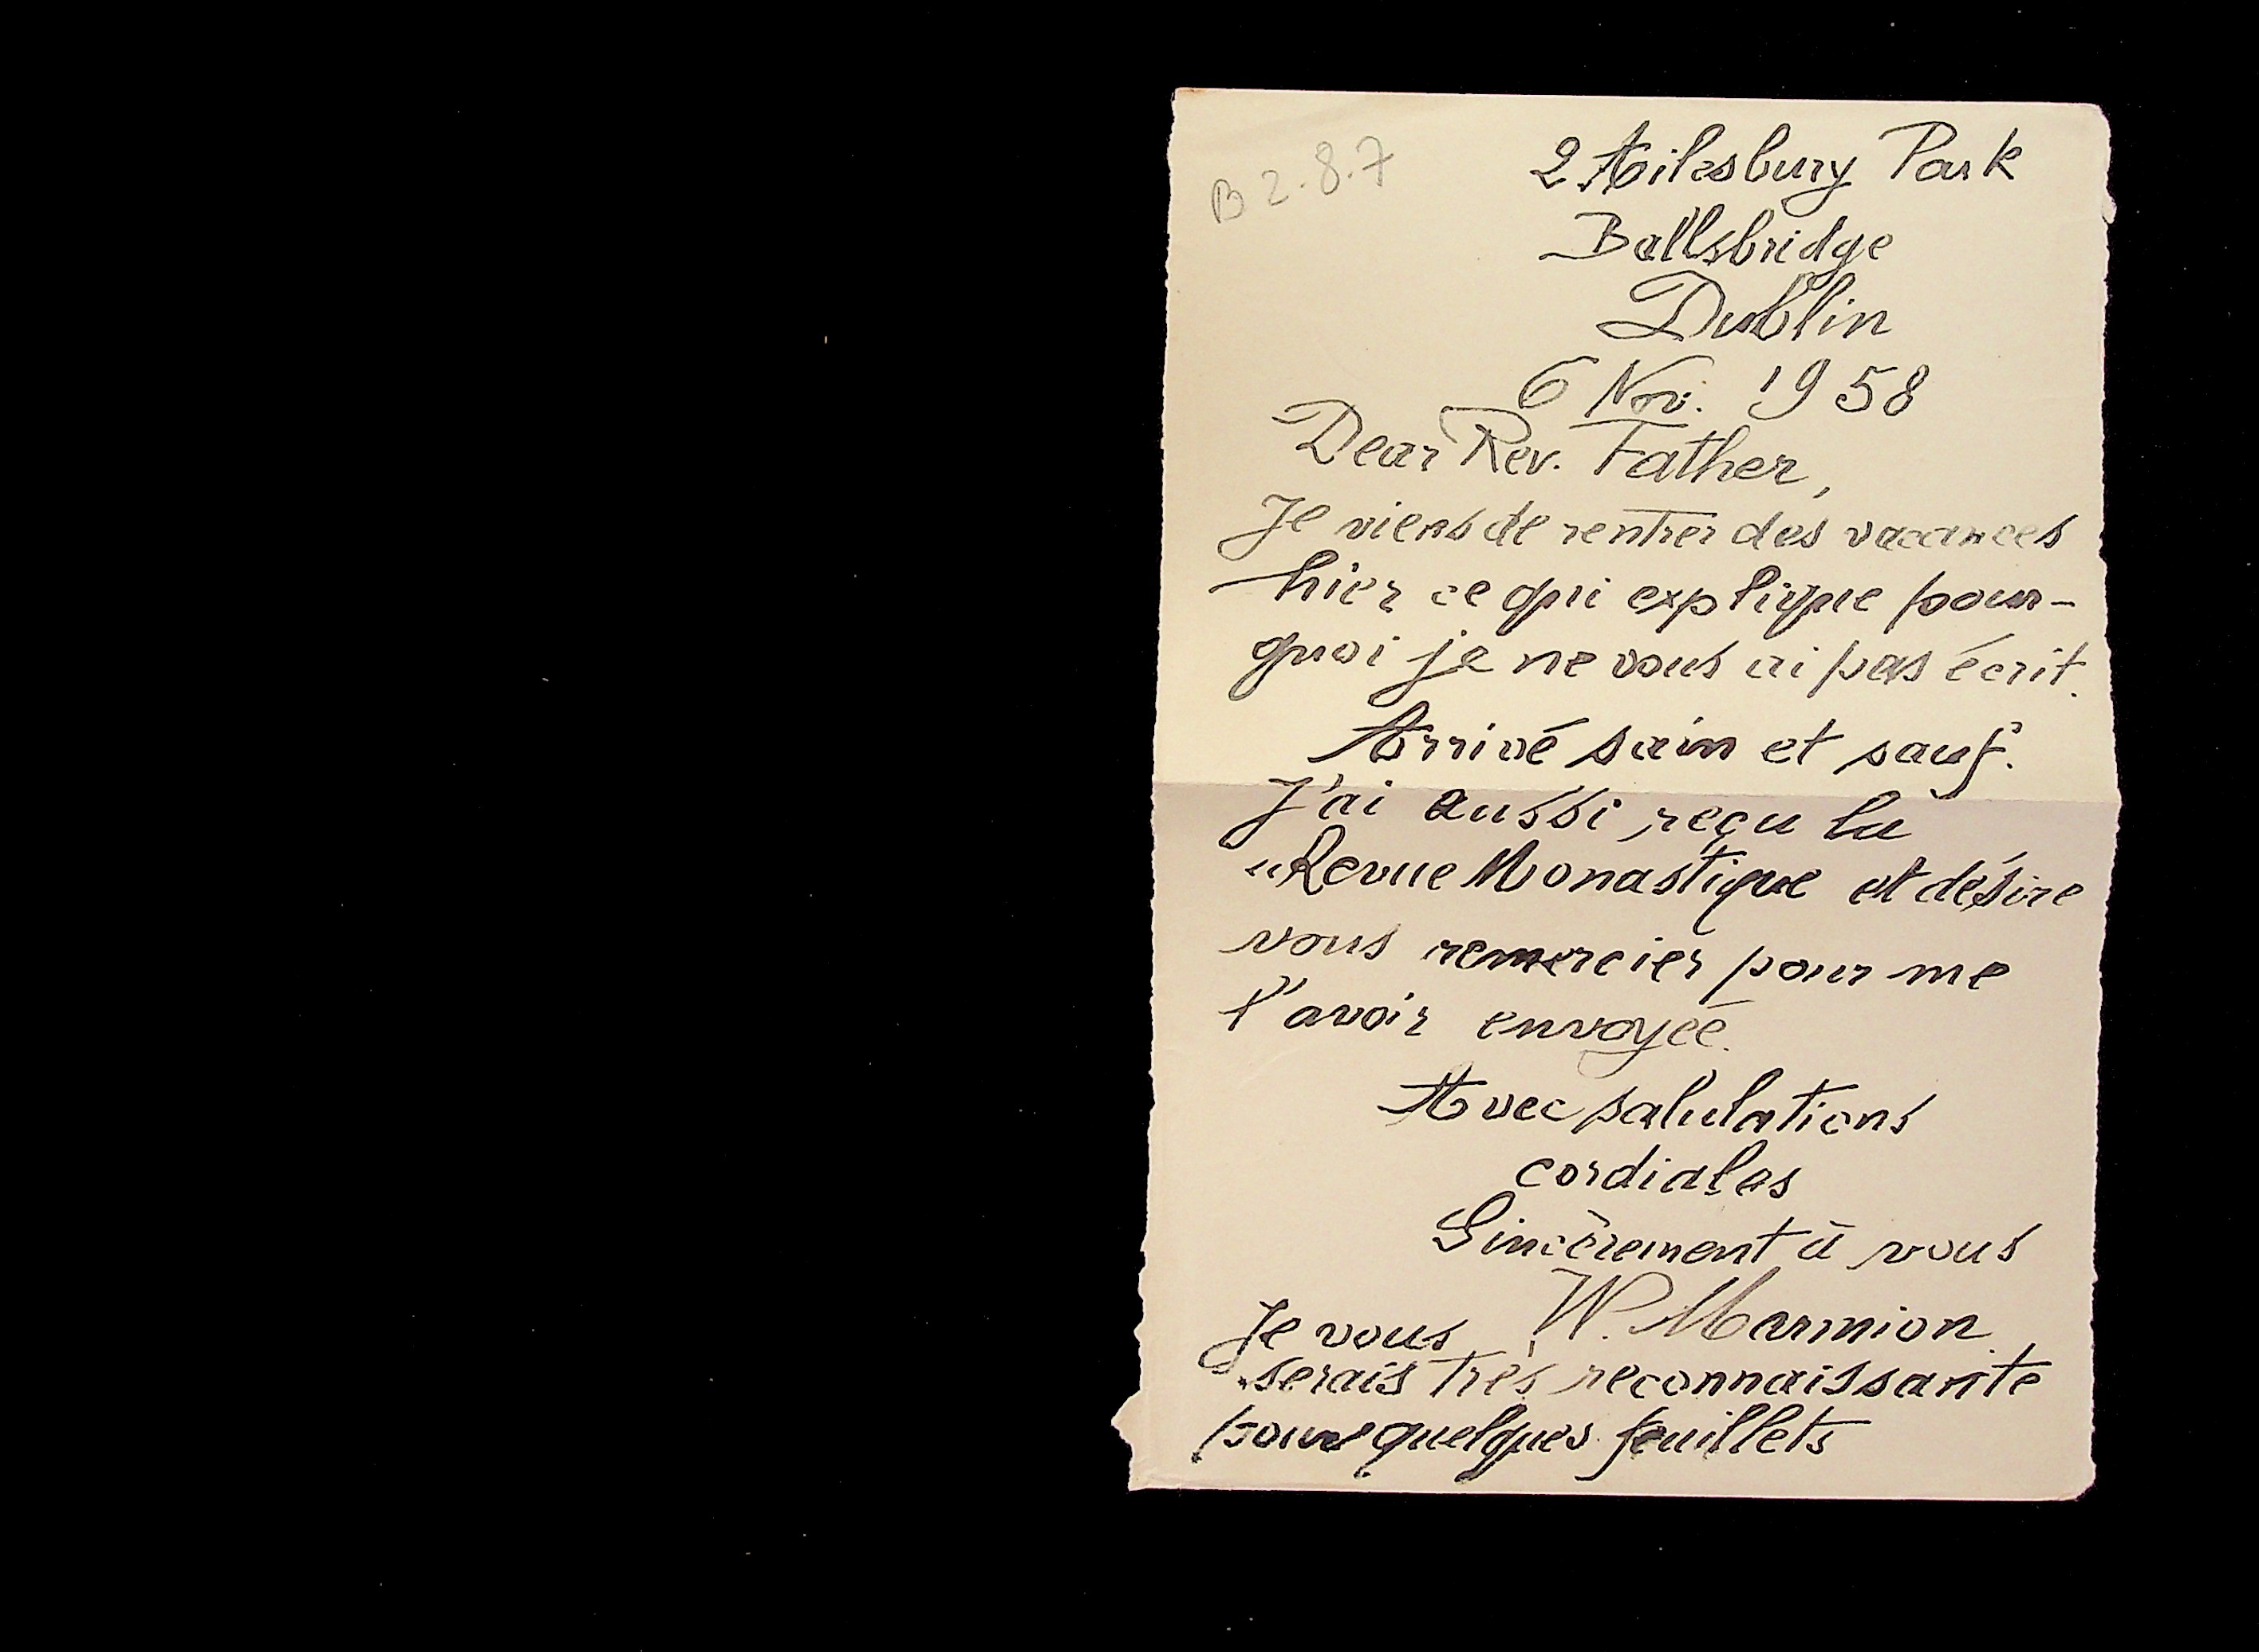 B 2.8.7
2 Ailesbury Park
Ballsbridge
Dublin
6 Nov. 1958
Dear Rev. Father,
Je viens de rentrer des vacances
hier ce qui explique pour-
quoi je ne vous ai pas écrit.
Arrivé sain et sauf.
J'ai aussi reçu la
"Revue Monastique et désire
vous remercier pour me
l'avoir envoyée.
Avec salutations
cordiales
Sincèrement à vous
W. Marmion
Je vous
serais très reconnaissante
pour quelques feuillets